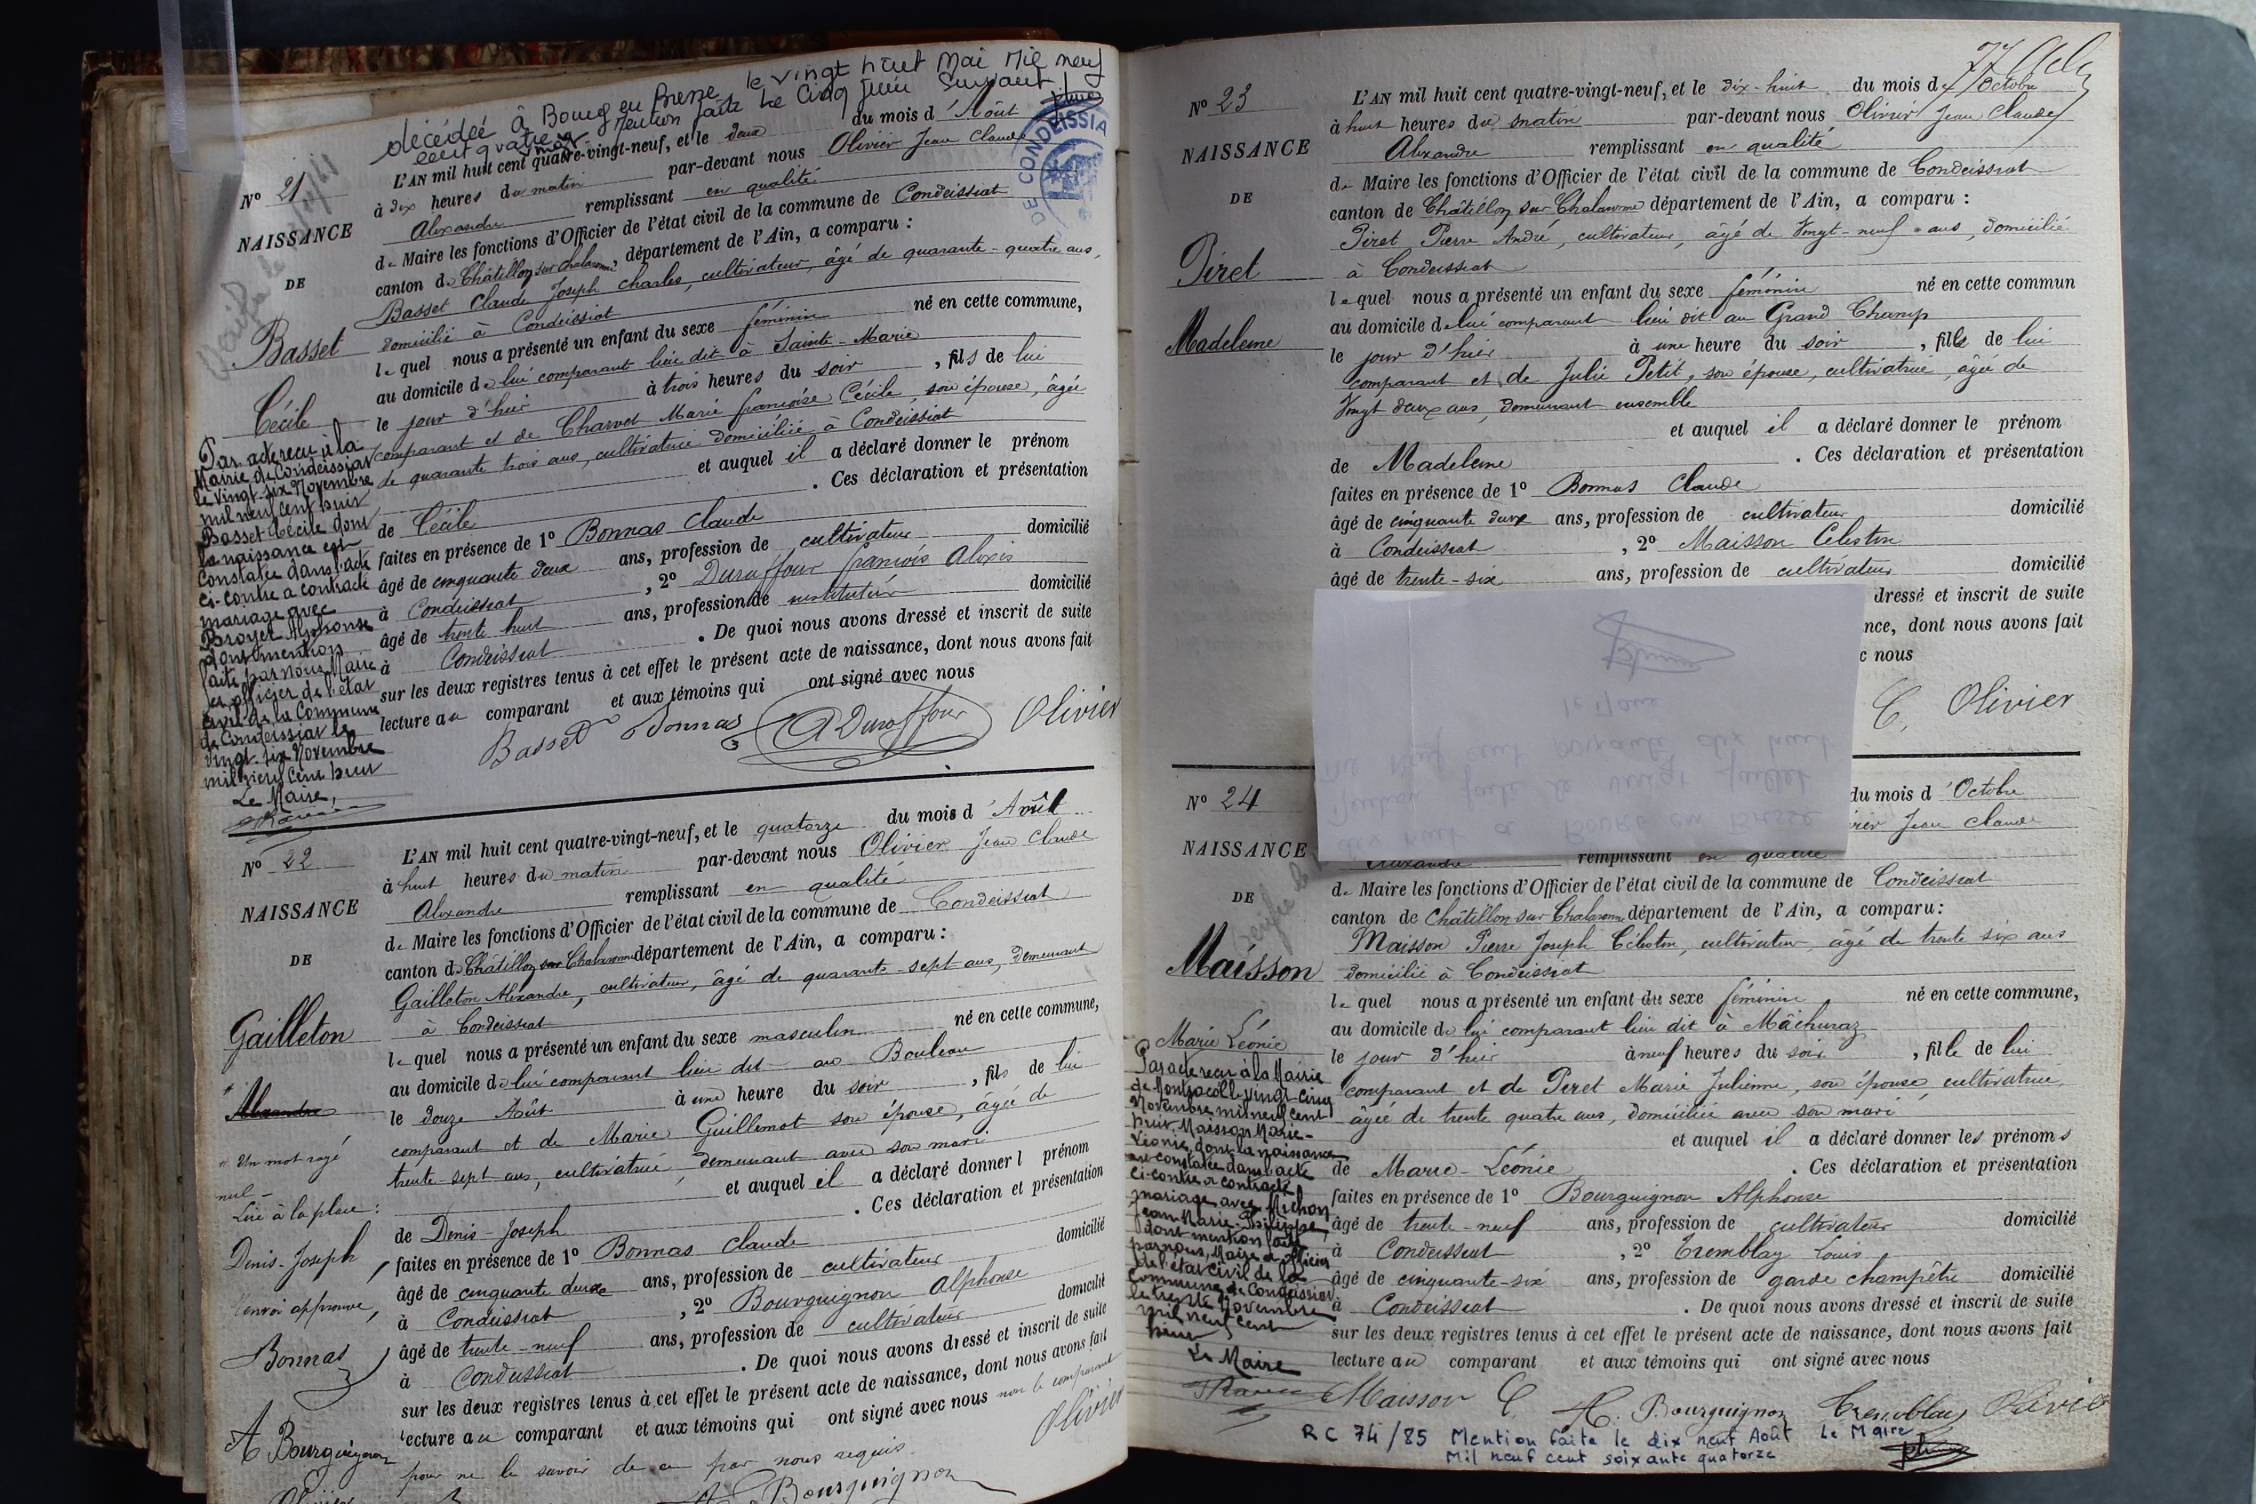 décédée à Bourg en Bresse le vingt huit Mai Mil neuf
cent quatre Mention faite le Cinq Juin Suivant
N° 21
NAISSANCE
DE
Basset
Cécile
Par acte reçu à la
Mairie de Condeissiat
le vingt-six Novembre
mil neuf cent huit
Basset Cécile dont
la naissance est
constatée dans l'acte
ci-contre a contracté
mariage avec
Broyer Alphonse
dont mention
faite par nous Maire
et officier de l'état
civil de la Commune
de Condeissiat le
vingt-six Novembre
mil neuf cent huit
Le Maire,
L'AN mil huit cent quatre-vingt-neuf, et le deux du mois d'Août
à dix heures du matin par-devant nous Olivier Jean Claude
Alexandre remplissant en qualité
de Maire les fonctions d'Officier de l'état civil de la commune de Condeissiat
canton de Châtillon sur Chalaronne département de l'Ain, a comparu :
Basset Claude Joseph Charles, cultivateur, âgé de quarante-quatre ans,
domicilié à Condeissiat
lequel nous a présenté un enfant du sexe féminin né en cette commune,
au domicile de lui comparant lieu dit à Sainte-Marie
le jour d'hier à trois heures du soir, fils de lui
comparant et de Charvet Marie françoise Cécile, son épouse, âgée
de quarante trois ans, cultivatrice domiciliée à Condeissiat
et auquel il a déclaré donner le prénom
de Cécile. Ces déclaration et présentation
faites en présence de 1° Bonnas Claude
âgé de cinquante deux ans, profession de cultivateur domicilié
à Condeissiat, 2° Duraffour françois Alexis
âgé de trente huit ans, profession de instituteur domicilié
à Condeissiat. De quoi nous avons dressé et inscrit de suite
sur les deux registres tenus à cet effet le présent acte de naissance, dont nous avons fait
lecture au comparant et aux témoins qui ont signé avec nous
Basset Bonnas A Duraffour Olivier
N° 22
NAISSANCE
DE
Gailleton
Alexandre
* Un mot rayé
nul -
Lire à la place :
Denis-Joseph
Renvoi approuvé,
Bonnas
A Bourguignon
L'AN mil huit cent quatre-vingt-neuf, et le quatorze du mois d'Août
à huit heures du matin par-devant nous Olivier Jean Claude
Alexandre remplissant en qualité
de Maire les fonctions d'Officier de l'état civil de la commune de Condeissiat
canton de Châtillon sur Chalaronne département de l'Ain, a comparu :
Gailleton Alexandre, cultivateur, âgé de quarante-sept ans, demeurant
à Condeissiat
lequel nous a présenté un enfant du sexe masculin né en cette commune,
au domicile de lui comparant lieu dit au Bouleau
le douze Août à une heure du soir, fils de lui
comparant et de Marie Guillemot son épouse, âgée de
trente-sept ans, cultivatrice, demeurant avec son mari
et auquel il a déclaré donner l prénom
de Denis-Joseph. Ces déclaration et présentation
faites en présence de 1° Bonnas Claude
âgé de cinquante deux ans, profession de cultivateur domicilié
à Condeissiat, 2° Bourguignon Alphonse
âgé de trente-neuf ans, profession de cultivateur domicilié
à Condeissiat. De quoi nous avons dressé et inscrit de suite
sur les deux registres tenus à cet effet le présent acte de naissance, dont nous avons fait
lecture au comparant et aux témoins qui ont signé avec nous non le comparant
pour ne le savoir de ce par nous requis.
Olivier
A. Bourguignon
N° 23
NAISSANCE
DE
Piret
Madeleine
L'AN mil huit cent quatre-vingt-neuf, et le dix-huit du mois de Octobre
à huit heures du matin par-devant nous Olivier Jean Claude
Alexandre remplissant en qualité
de Maire les fonctions d'Officier de l'état civil de la commune de Condeissiat
canton de Châtillon sur Chalaronne département de l'Ain, a comparu :
Piret Pierre André, cultivateur, âgé de vingt-neuf ans, domicilié
à Condeissiat
lequel nous a présenté un enfant du sexe féminin né en cette commun
au domicile de lui comparant lieu dit au Grand Champ
le jour d'hier à une heure du soir, fille de lui
comparant et de Julie Petit, son épouse, cultivatrice, âgée de
vingt deux ans, demeurant ensemble
et auquel il a déclaré donner le prénom
de Madeleine. Ces déclaration et présentation
faites en présence de 1° Bonnas Claude
âgé de cinquante deux ans, profession de cultivateur domicilié
à Condeissiat, 2° Maisson Célestin
âgé de trente-six ans, profession de cultivateur domicilié
dressé et inscrit de suite
nce, dont nous avons fait
c nous
C. Olivier
N° 24
NAISSANCE
DE
Maisson
Marie Léonie
Par acte reçu à la Mairie
de Montracol le vingt-cinq
Novembre mil neuf cent
huit, Maisson Marie-
Léonie, dont la naissance
est constatée dans l'acte
ci-contre a contracté
mariage avec Michon
Jean-Marie-Philippe,
dont mention faite
par nous, Maire et officier
de l'état civil de la
commune de Condeissiat
le trente Novembre
mil neuf cent
huit
Le Maire
du mois d'Octobre
vier Jean Claude
Alexandre remplissant en qualité
de Maire les fonctions d'Officier de l'état civil de la commune de Condeissiat
canton de Châtillon sur Chalaronne département de l'Ain, a comparu :
Maisson Pierre Joseph Célestin, cultivateur, âgé de trente six ans
domicilié à Condeissiat
lequel nous a présenté un enfant du sexe féminin né en cette commune,
au domicile de lui comparant lieu dit à Mâchuraz
le jour d'hier à neuf heures du soir, fille de lui
comparant et de Peret Marie Julienne, son épouse, cultivatrice,
âgée de trente quatre ans, domiciliée avec son mari
et auquel il a déclaré donner les prénoms
de Marie-Léonie. Ces déclaration et présentation
faites en présence de 1° Bourguignon Alphonse
âgé de trente-neuf ans, profession de cultivateur domicilié
à Condeissiat, 2° Tremblay Louis
âgé de cinquante-six ans, profession de garde champêtre domicilié
à Condeissiat. De quoi nous avons dressé et inscrit de suite
sur les deux registres tenus à cet effet le présent acte de naissance, dont nous avons fait
lecture au comparant et aux témoins qui ont signé avec nous
Maisson C. A. Bourguignon Tremblay Olivier
RC 74/85 Mention faite le dix neuf Août Le Maire
Mil neuf cent soixante quatorze